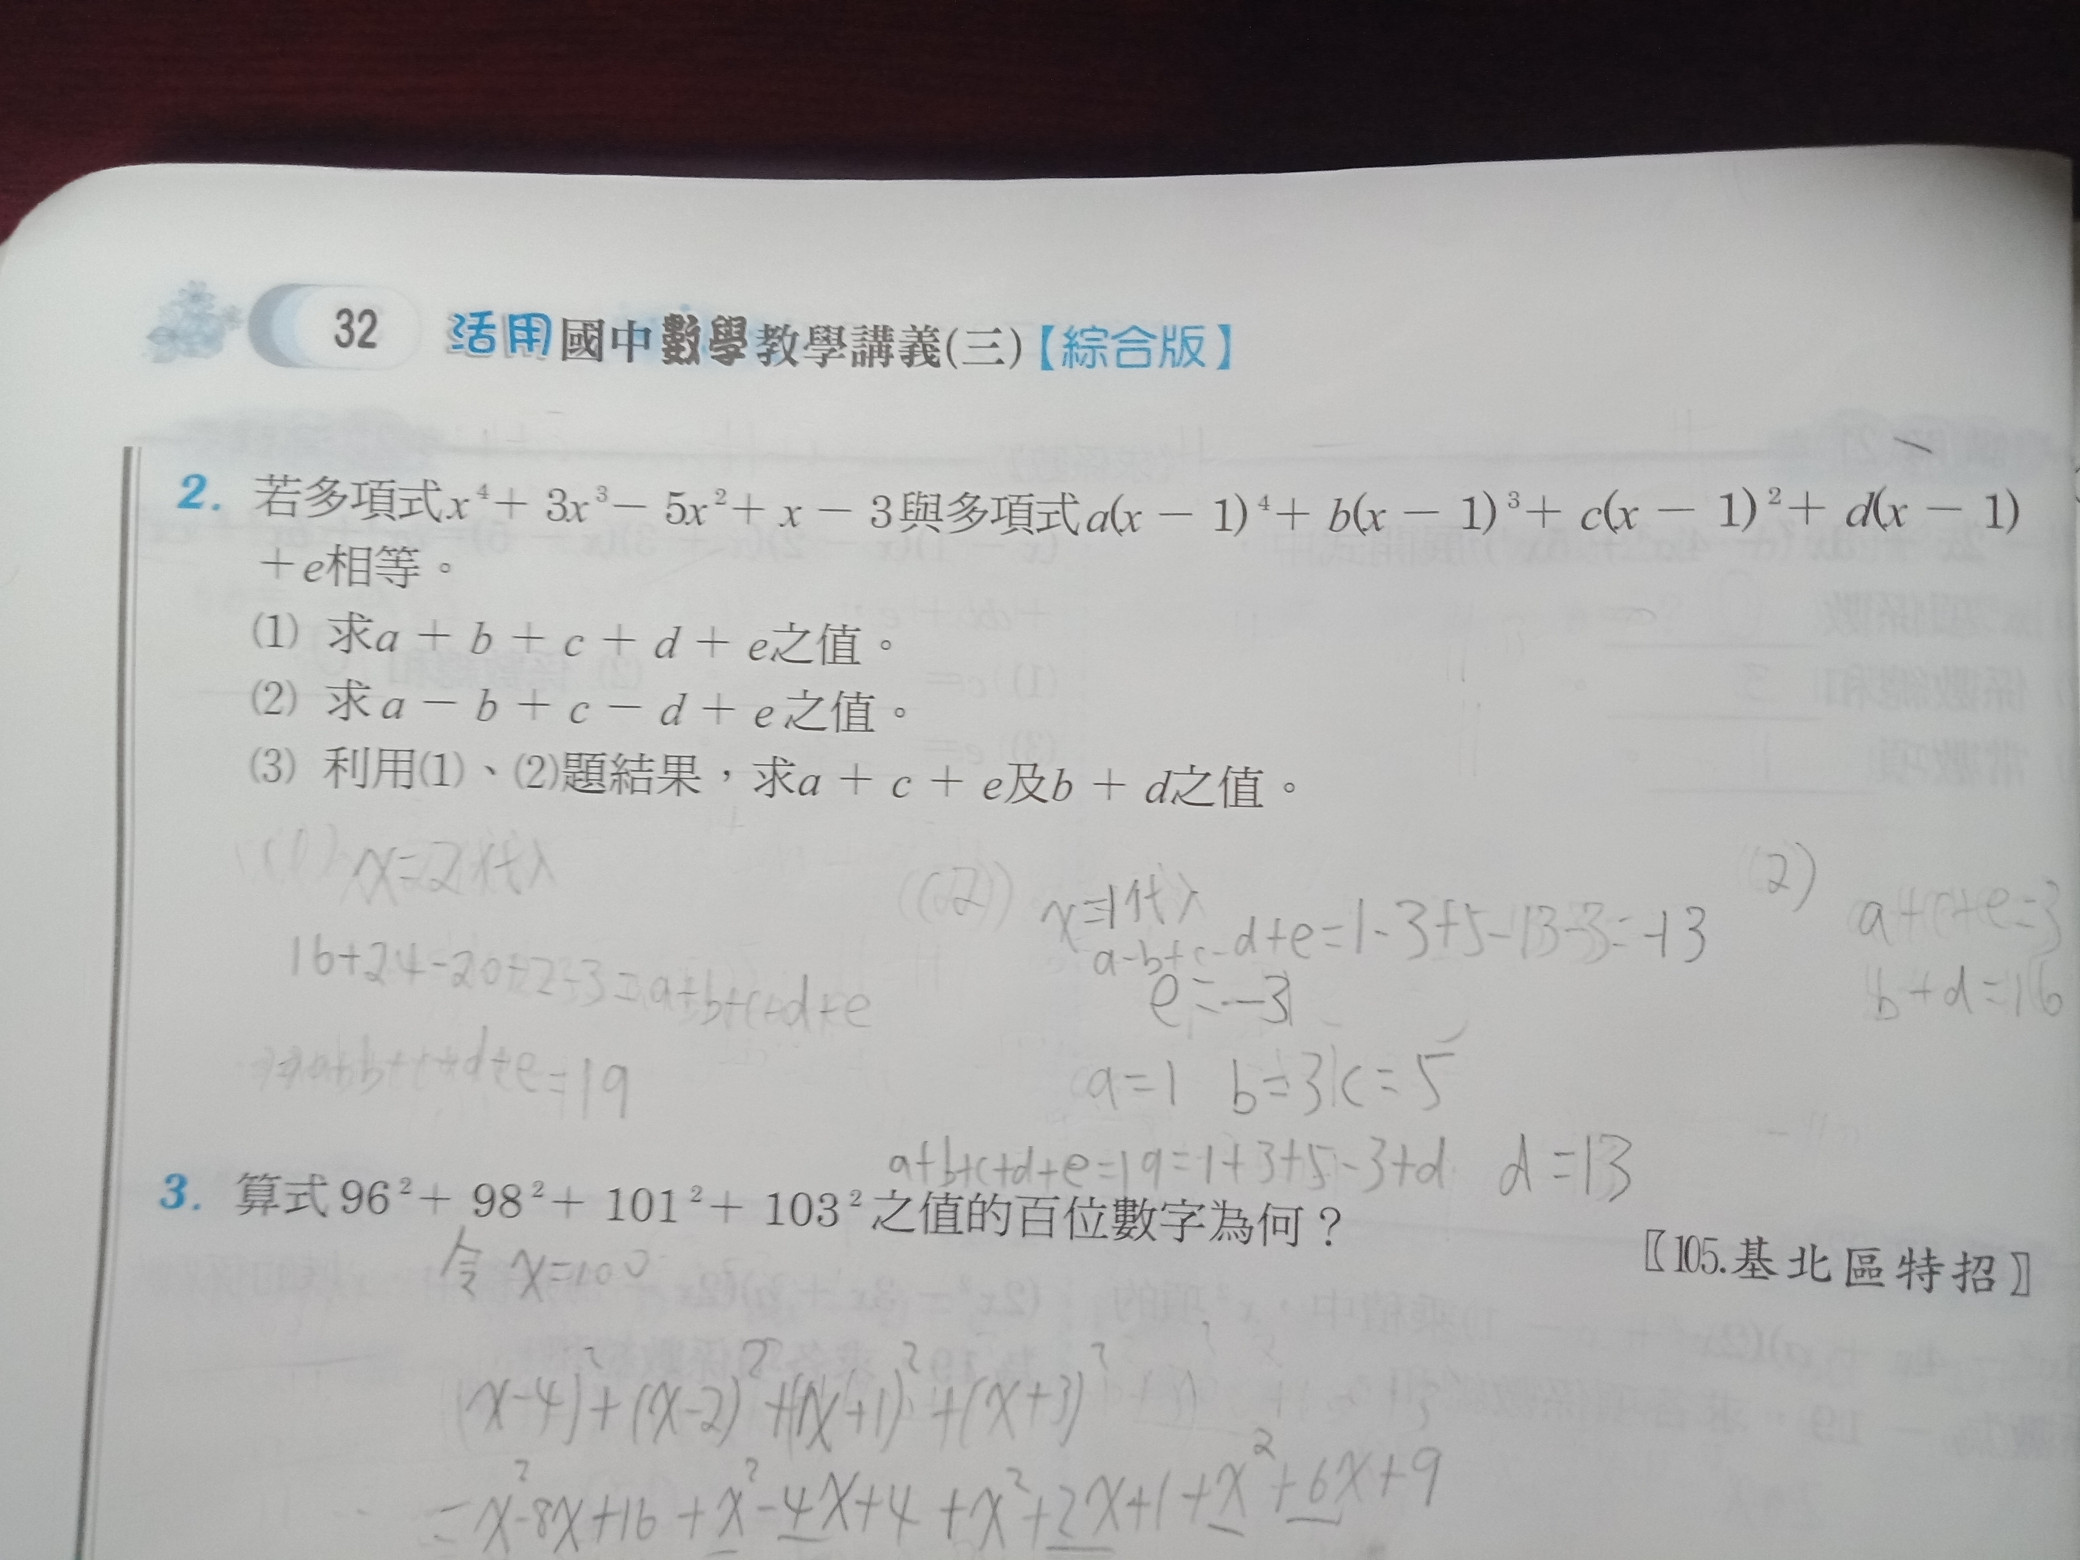 32 活用國中數學教學講義(三)【綜合版】
2. 若多項式x⁴+ 3x³− 5x²+ x − 3與多項式a(x − 1)⁴+ b(x − 1)³+ c(x − 1)²+ d(x − 1)
+e相等。
(1) 求a + b + c + d + e之值。
(2) 求a − b + c − d + e之值。
(3) 利用(1)、(2)題結果，求a + c + e及b + d之值。
(1) x=2代入
16+24-20+2-3=a+b+c+d+e
a+b+c+d+e=19
(2) x=1代入
a-b+c-d+e=1-3+5-13-3=-13
e=-3
a=1 b=3 c=5
a+b+c+d+e=19=1+3+5-3+d d=13
(2) a+c+e=3
b+d=16
3. 算式96²+ 98²+ 101²+ 103²之值的百位數字為何？
〖105.基北區特招〗
令 x=100
(x-4)²+(x-2)²+(x+1)²+(x+3)²
=x²-8x+16+x²-4x+4+x²+2x+1+x²+6x+9